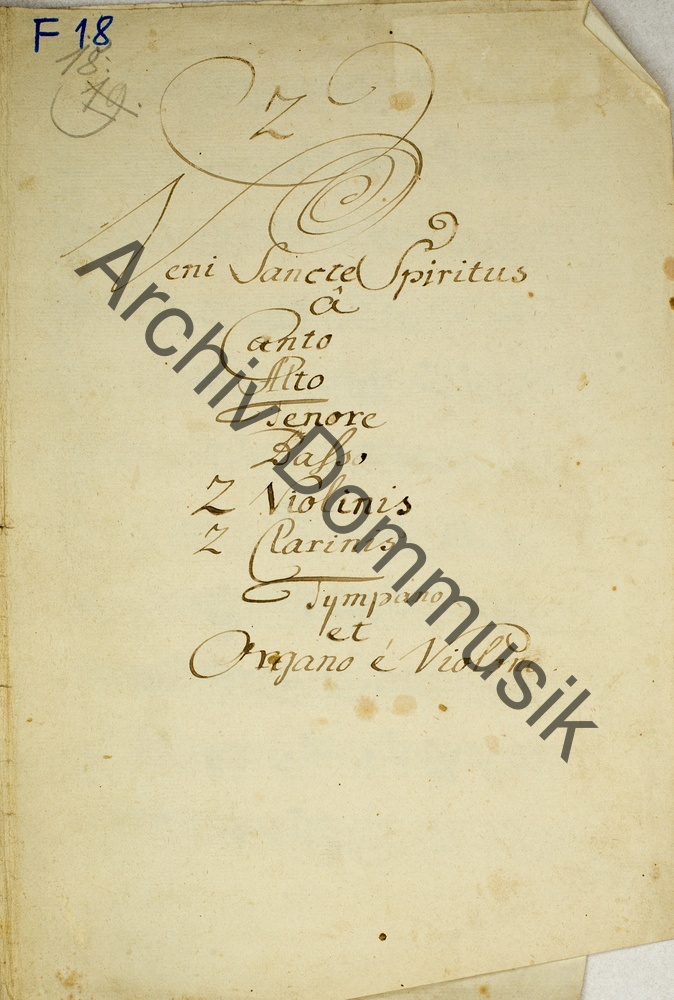 F 18
18.
19.
2
Veni Sancte Spiritus
â
Canto
Alto
Tenore
Basso
2 Violinis
2 Clarinis
Tympano
et
Organo é Violone
Archiv Dommusik